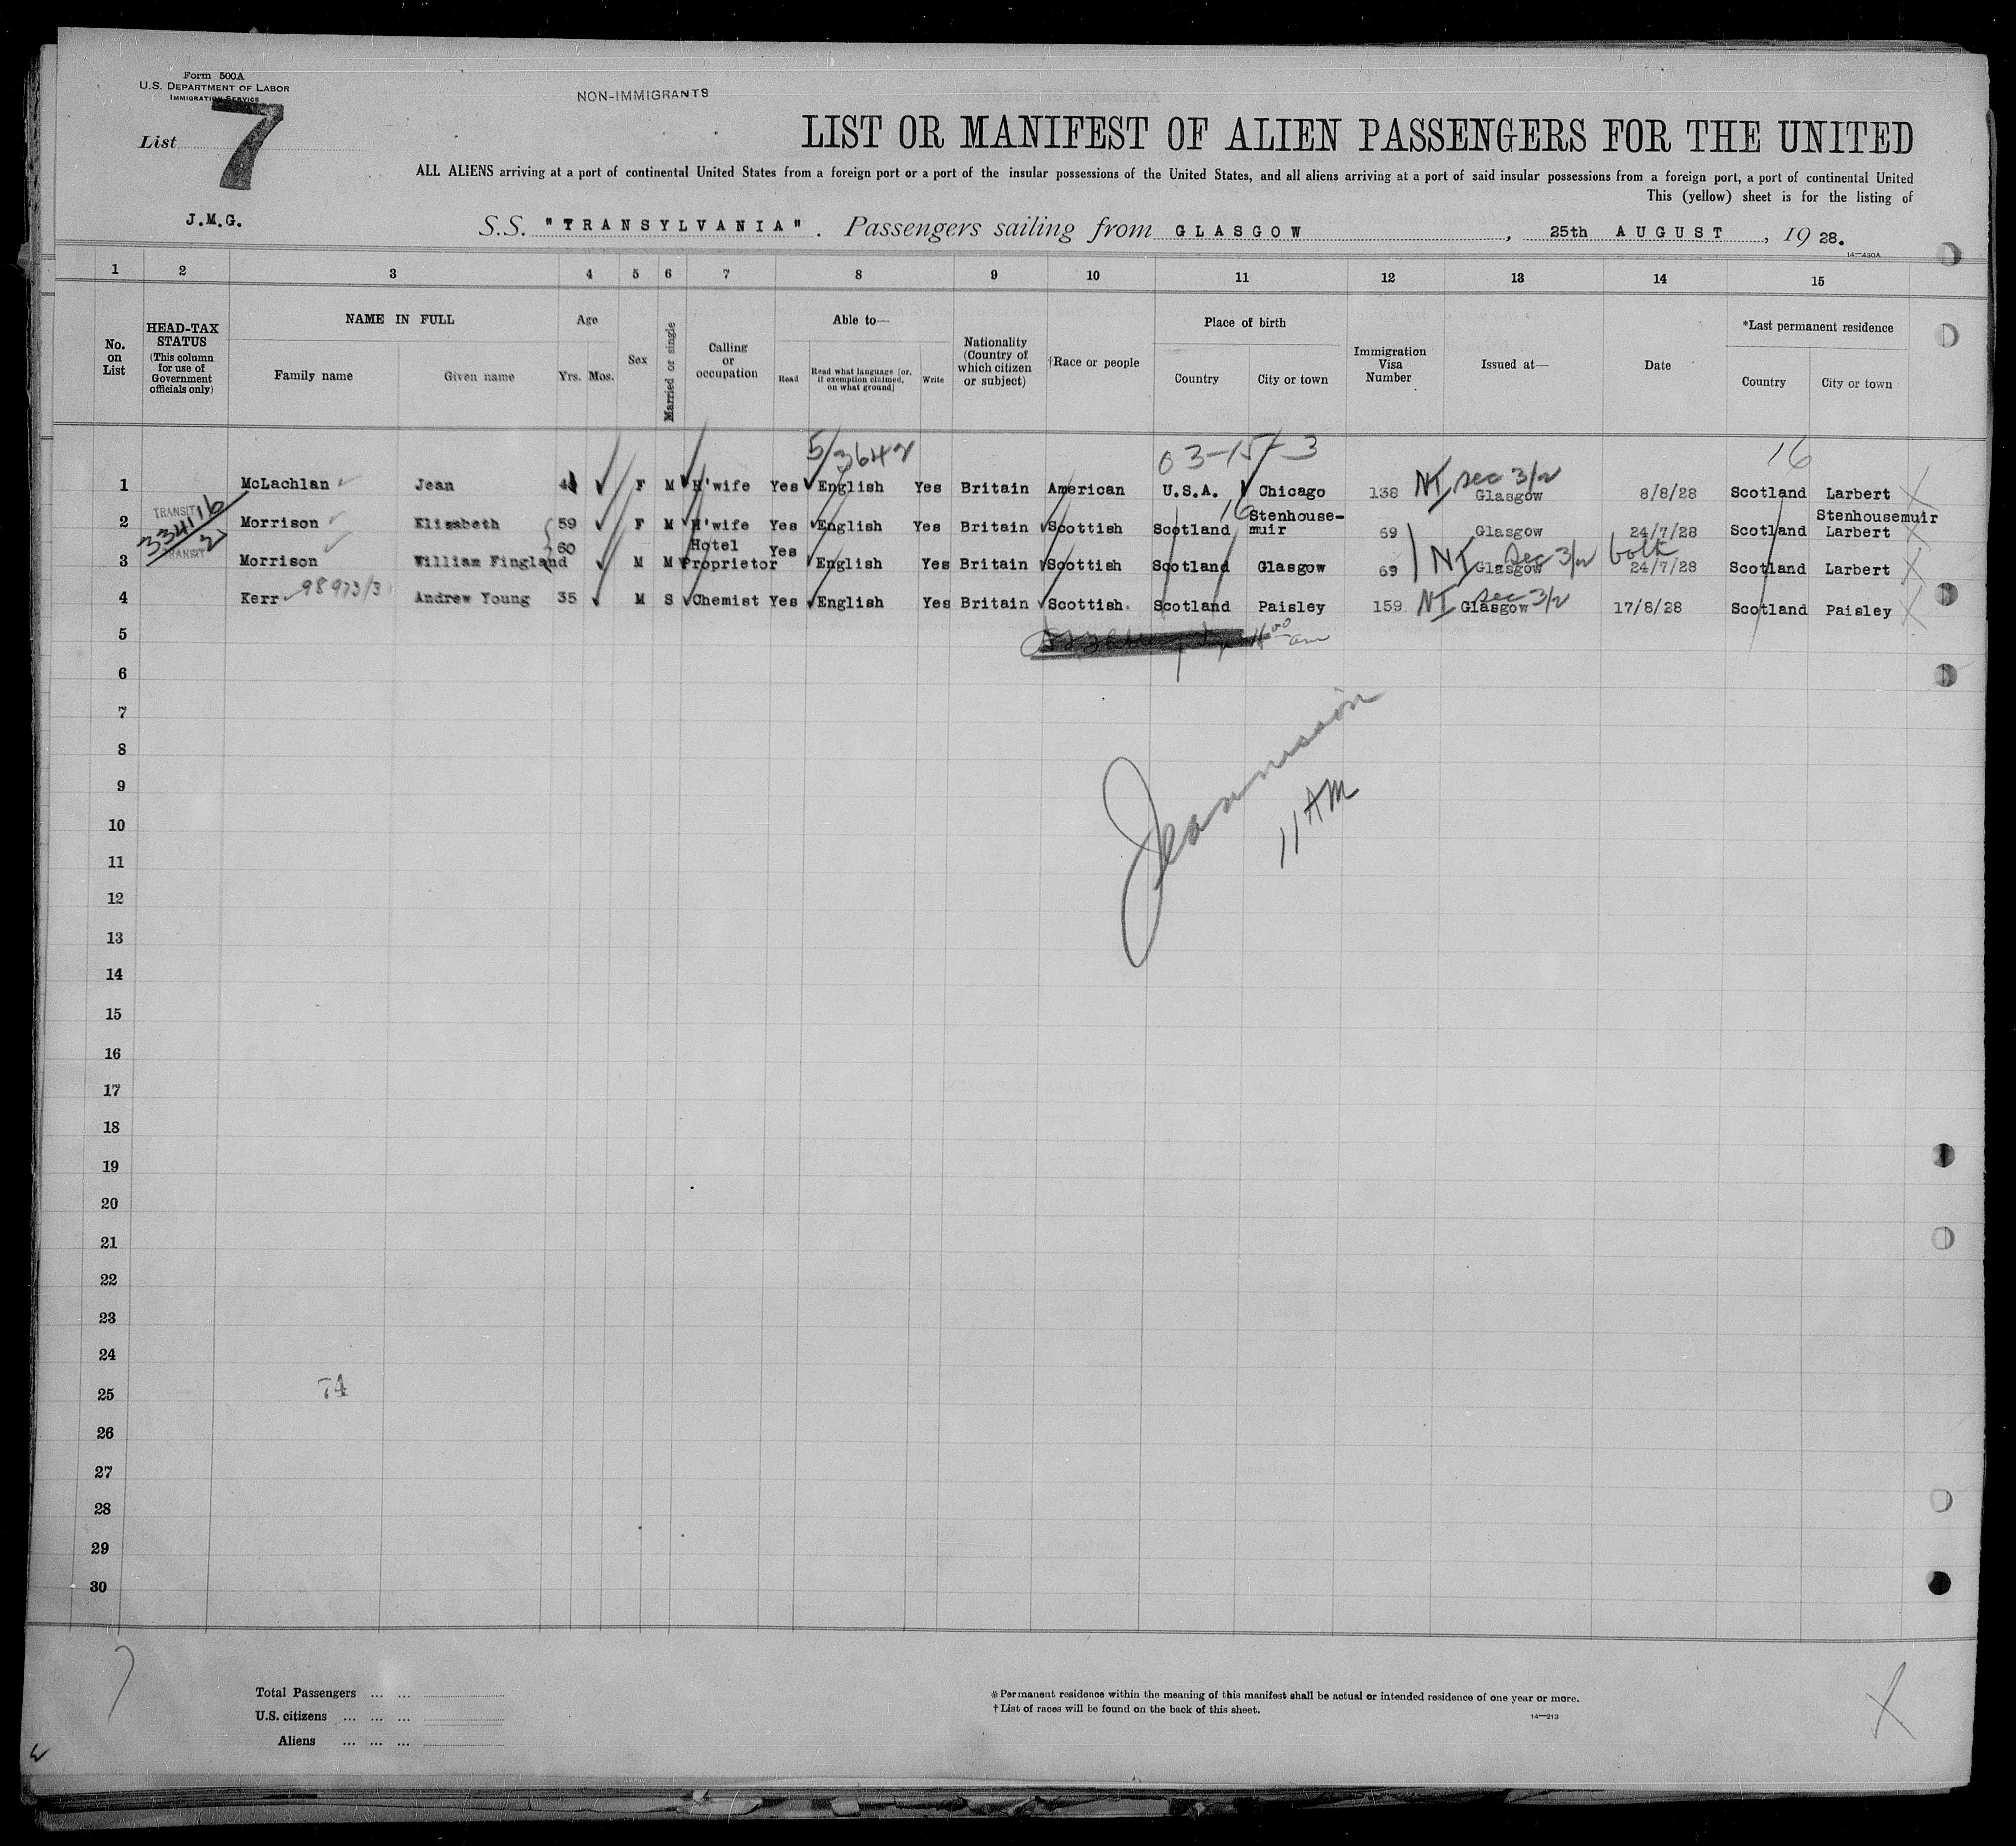 Form 500A
U.S. DEPARTMENT OF LABOR
IMMIGRATION SERVICE
NON-IMMIGRANTS
List 7
LIST OR MANIFEST OF ALIEN PASSENGERS FOR THE UNITED
ALL ALIENS arriving at a port of continental United States from a foreign port or a port of the insular possessions of the United States, and all aliens arriving at a port of said insular possessions from a foreign port, a port of continental United
This (yellow) sheet is for the listing of
J.M.G.
S.S. "TRANSYLVANIA". Passengers sailing from GLASGOW, 25th AUGUST, 1928.
14—430A
1 2 3 4 5 6 7 8 9 10 11 12 13 14 15
No. on List
HEAD-TAX STATUS (This column for use of Government officials only)
NAME IN FULL
Family name Given name
Age
Yrs. Mos.
Sex
Married or single
Calling or occupation
Able to—
Read Read what language [or, if exemption claimed, on what ground] Write
Nationality (Country of which citizen or subject)
†Race or people
Place of birth
Country City or town
Immigration Visa Number
Issued at—
Date
*Last permanent residence
Country City or town
5/3642 03-15-3 16
1 McLachlan Jean F M H'wife Yes English Yes Britain American U.S.A. Chicago 138 NI sec 3/2 Glasgow 8/8/28 Scotland Larbert
TRANSIT
2 Morrison Elizabeth 59 F M H'wife Yes English Yes Britain Scottish Scotland 16 Stenhouse-muir 69 Glasgow 24/7/28 Scotland Stenhousemuir Larbert
33416/2
TRANSIT
3 Morrison William Fingland 60 M M Hotel Proprietor Yes English Yes Britain Scottish Scotland Glasgow 69 NI sec 3/2 both Glasgow 24/7/28 Scotland Larbert
4 Kerr 98973/3 Andrew Young 35 M S Chemist Yes English Yes Britain Scottish. Scotland Paisley 159 NI sec 3/2 Glasgow 17/8/28 Scotland Paisley
5
am
6
7
8
9
11 AM
10
11
12
13
14
15
16
17
18
19
20
21
22
23
24
74
25
26
27
28
29
30
Total Passengers ... ...
U.S. citizens ... ... ...
Aliens ... ... ...
*Permanent residence within the meaning of this manifest shall be actual or intended residence of one year or more.
†List of races will be found on the back of this sheet.
14—213